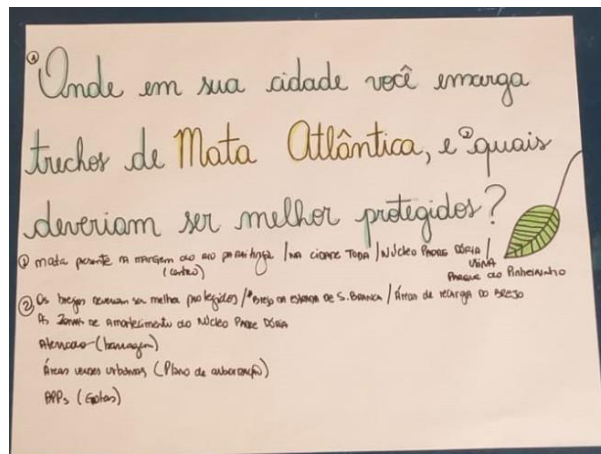 ① Onde em sua cidade você enxerga
trechos de Mata Atlântica, e ② quais
deveriam ser melhor protegidos?
① mata presente na margem do rio paraitinga / na cidade toda / Núcleo Padre Dória /
(centro)
Usina
Parque do Pinheirinho
② Os brejos deveriam ser melhor protegidos / Brejo da estrada de S. Branca / Áreas de recarga do brejo
As zonas de Amortecimento do Núcleo Padre Dória
Atencao (barragem)
Áreas verdes urbanas (Plano de arborização)
APPs